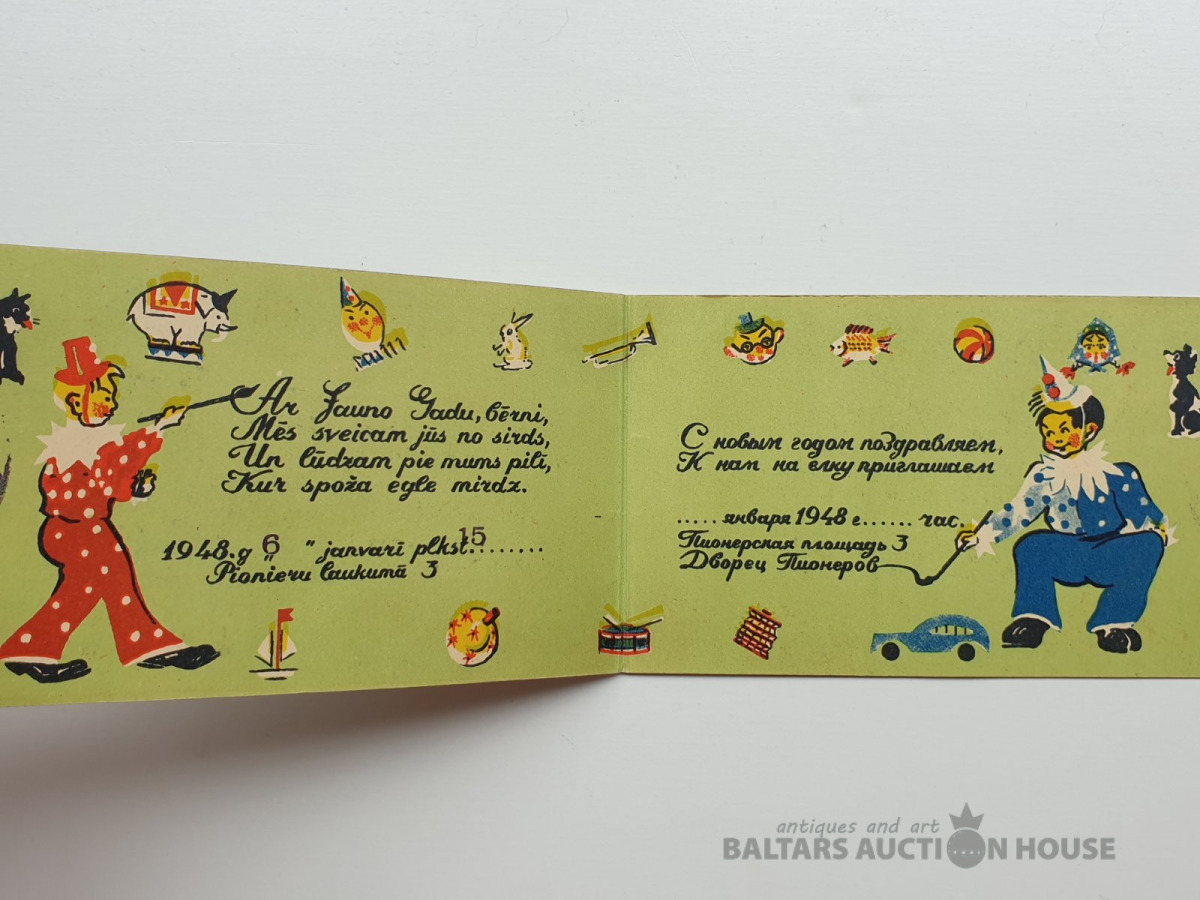 Ar Jauno Gadu, bērni,
Mēs sveicam jūs no sirds,
Un lūdzam pie mums pilī,
Kur spoža egle mirdz.
1948.g „6" janvarī plkst. 15........
Pionieru laukumā 3
С новым годом поздравляем,
К нам на елку приглашаем
..... января 1948 г...... час.
Пионерская площадь 3
Дворец Пионеров
antiques and art
BALTARS AUCTION HOUSE